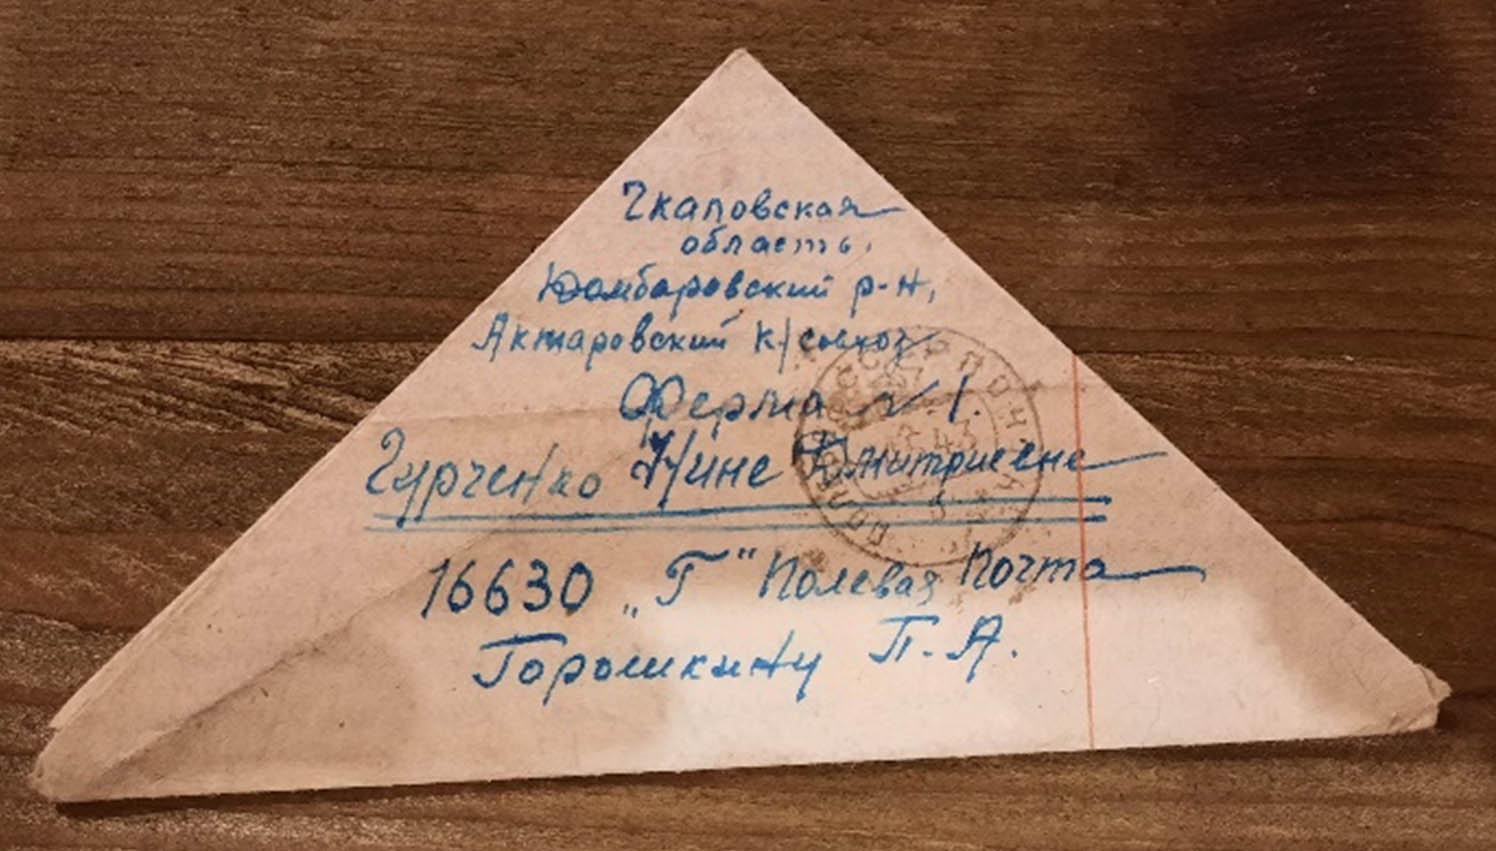 Чкаловская
область,
Домбаровский р-н,
Актаровский к/совхоз
Ферма № 1.
Гурченко Нине Дмитриевне
16630 „Г" Полевая Почта
Горошкину П. А.